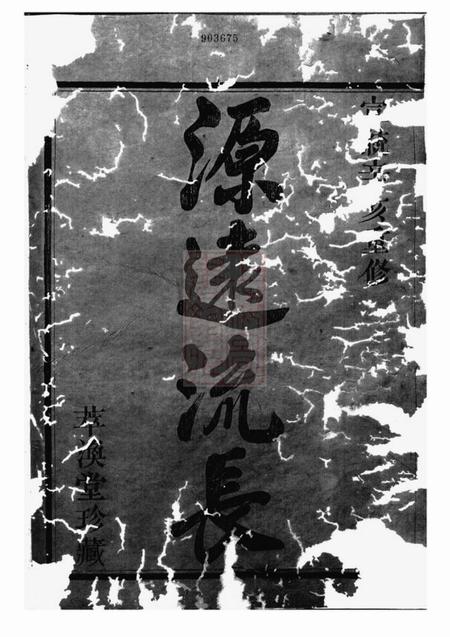 903675
宣統辛亥重修
源遠流長
萃渙堂珍藏